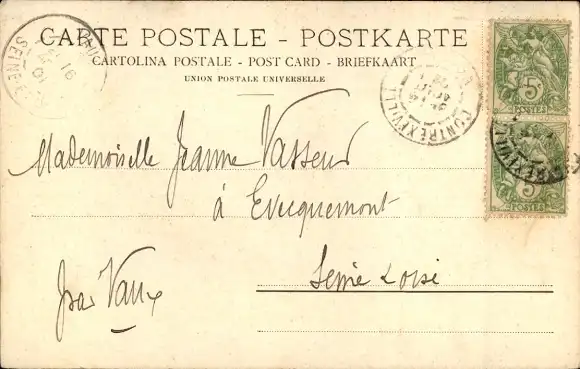 CARTE POSTALE - POSTKARTE
CARTOLINA POSTALE - POST CARD - BRIEFKAART
UNION POSTALE UNIVERSELLE
CONTREXÉVILLE
5
POSTES
5
POSTES
Mademoiselle Jeanne Vasseur
à Evecquemont
par Vaux
Seine & Oise